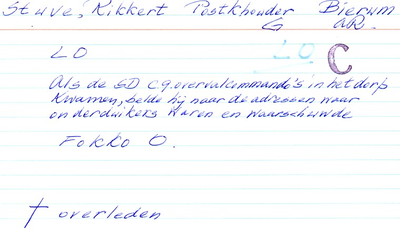 Stuve, Kikkert Postkhouder Bierum
G GR.
LO LO C
Als de SD c.q. overvalcommando's in het dorp
kwamen, belde hij naar de adressen waar
onderduikers waren en waarschuwde
Fokko O.
† overleden